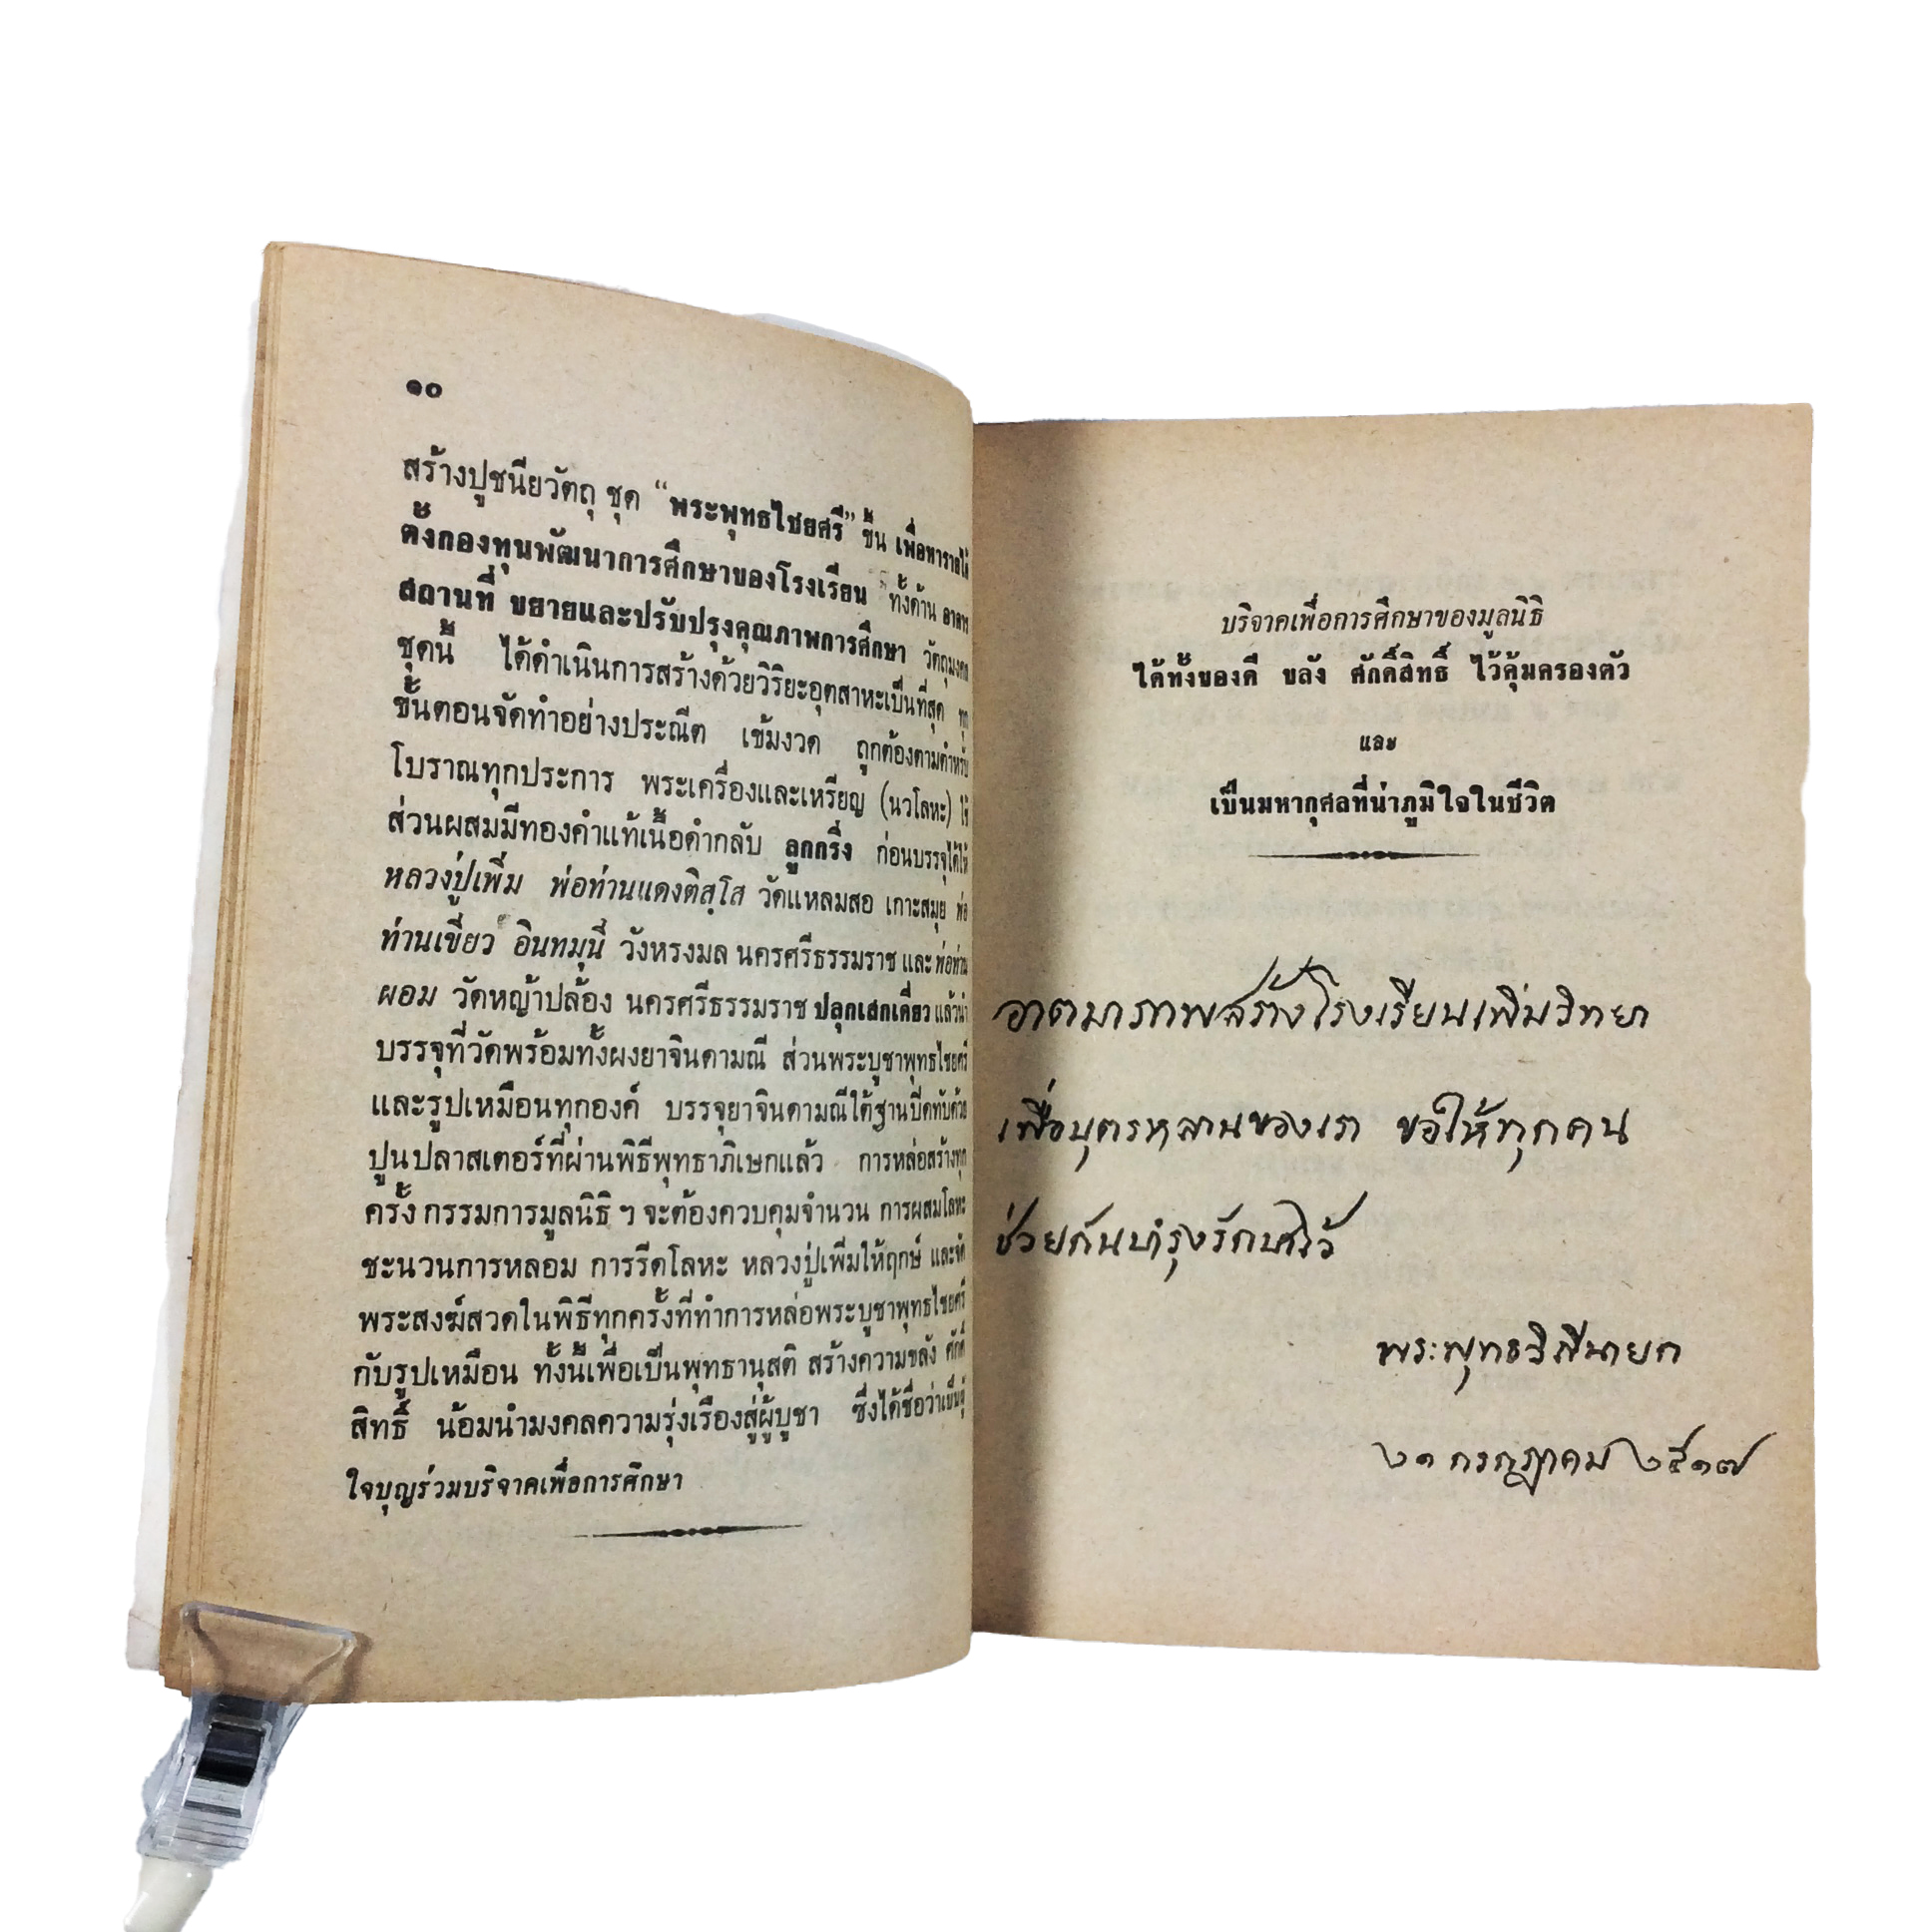 ๑๐
สร้างปูชนียวัตถุ ชุด “พระพุทธไชยศรี” ขึ้น เพื่อหารายได้
ตั้งกองทุนพัฒนาการศึกษาของโรงเรียน ทั้งด้าน อาคาร
สถานที่ ขยายและปรับปรุงคุณภาพการศึกษา วัตถุมงคล
ชุดนี้ ได้ดำเนินการสร้างด้วยวิริยะอุตสาหะเป็นที่สุด ทุก
ขั้นตอนจัดทำอย่างประณีต เข้มงวด ถูกต้องตามตำหรับ
โบราณทุกประการ พระเครื่องและเหรียญ (นวโลหะ) ใช้
ส่วนผสมมีทองคำแท้เนื้อดำกลับ ลูกกริ่ง ก่อนบรรจุได้ให้
หลวงปู่เพิ่ม พ่อท่านแดงติสฺโส วัดแหลมสอ เกาะสมุย พ่อ
ท่านเขียว อินทมุนี วังหรงมล นครศรีธรรมราช และ พ่อท่าน
ผอม วัดหญ้าปล้อง นครศรีธรรมราช ปลุกเสกเดี่ยว แล้วนำ
บรรจุที่วัดพร้อมทั้งผงยาจินดามณี ส่วนพระบูชาพุทธไชยศรี
และรูปเหมือนทุกองค์ บรรจุยาจินดามณีใต้ฐานปิดทับด้วย
ปูนปลาสเตอร์ที่ผ่านพิธีพุทธาภิเษกแล้ว การหล่อสร้างทุก
ครั้ง กรรมการมูลนิธิ ฯ จะต้องควบคุมจำนวน การผสมโลหะ
ชะนวนการหลอม การรีดโลหะ หลวงปู่เพิ่มให้ฤกษ์ และจัด
พระสงฆ์สวดในพิธีทุกครั้งที่ทำการหล่อพระบูชาพุทธไชยศรี
กับรูปเหมือน ทั้งนี้เพื่อเป็นพุทธานุสติ สร้างความขลัง ศักดิ์
สิทธิ์ น้อมนำมงคลความรุ่งเรืองสู่ผู้บูชา ซึ่งได้ชื่อว่าเป็นผู้
ใจบุญร่วมบริจาคเพื่อการศึกษา
บริจาคเพื่อการศึกษาของมูลนิธิ
ได้ทั้งของดี ขลัง ศักดิ์สิทธิ์ ไว้คุ้มครองตัว
และ
เป็นมหากุศลที่น่าภูมิใจในชีวิต
อาตมาภาพสร้างโรงเรียนเพิ่มวิทยา
เพื่อบุตรหลานของเรา ขอให้ทุกคน
ช่วยกันบำรุงรักษาไว้
พระพุทธวิถีนายก
๒๑ กรกฎาคม ๒๕๑๗